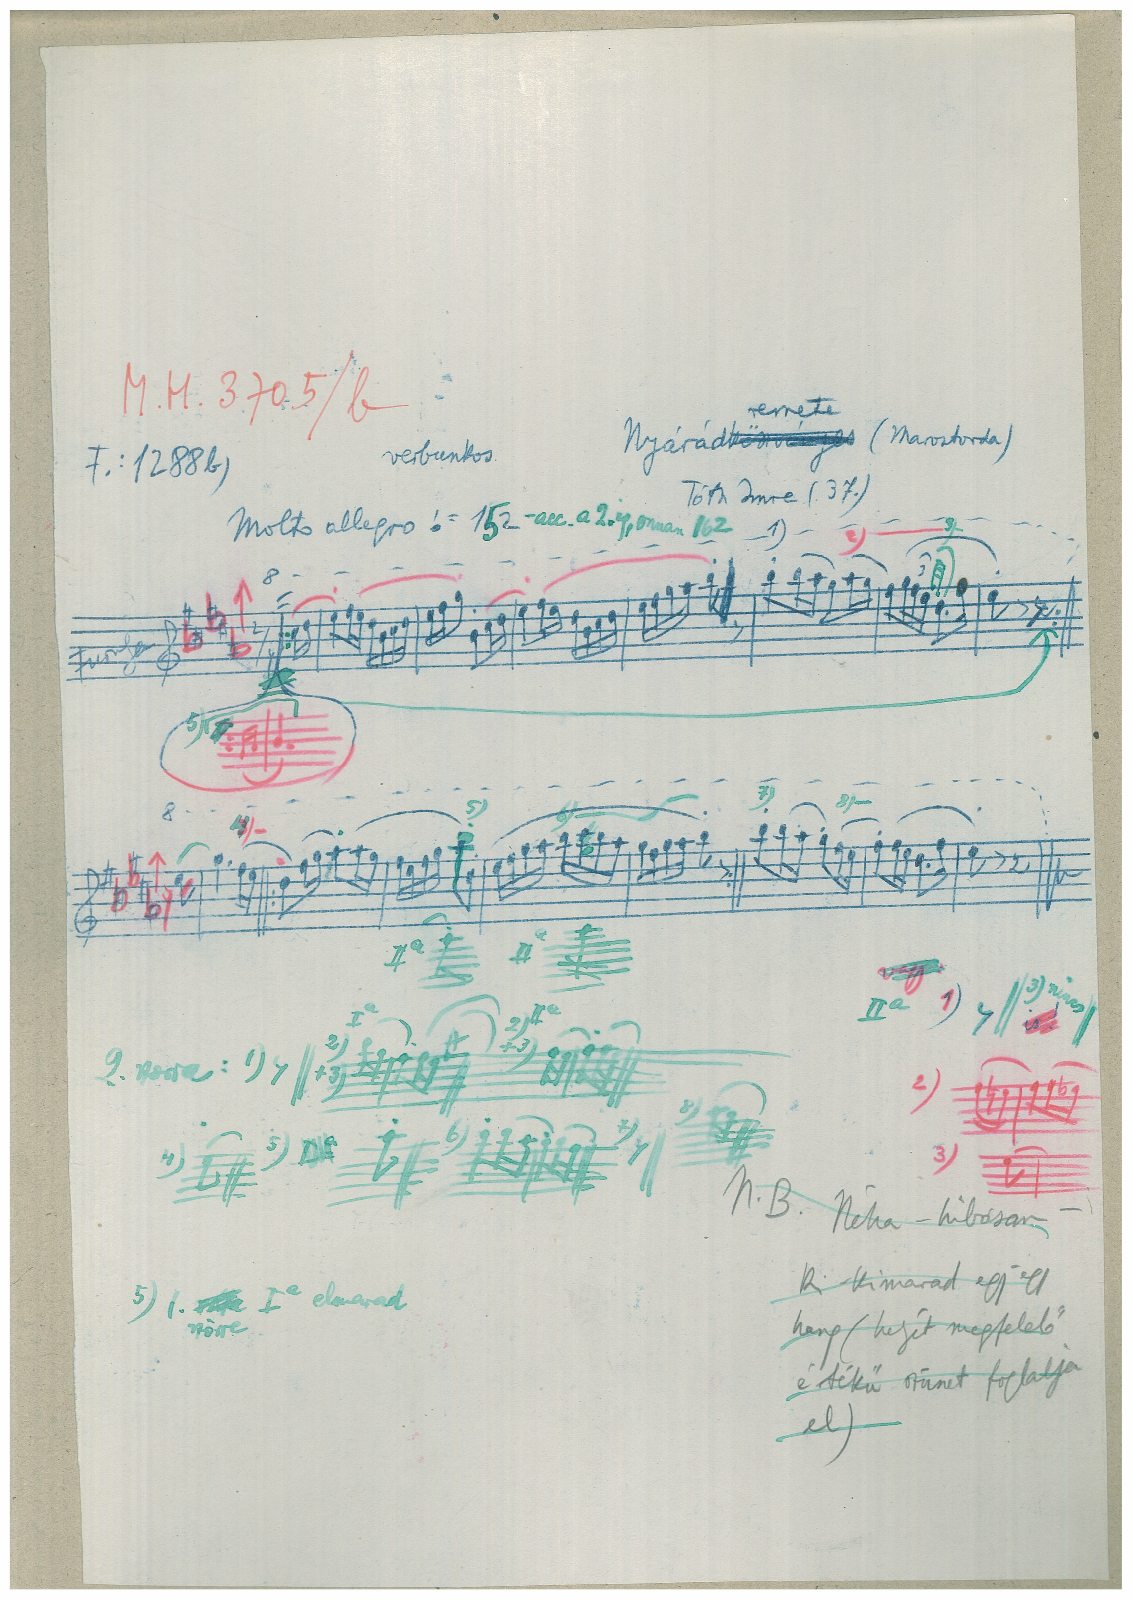 M.H. 3705/b
remete
F.: 1288b) verbunkos Nyárád (Marostorda)
Tóth Imre (37.)
Molto allegro = 152 - acc. a 2. ig, onnan 162
1) 2) 3)
8
3
Furulya
5)
8
4) 5) 6) 7) 8)
IIª IIª
IIª 1) 3) nincs
Iª 2) IIª
2. nóta: 1) 2) +3) +3)
2)
4) 5) IIª 6) 7) 8)
3)
N.B. Néha - hibásan -
ki-kimarad egy-egy
5) 1. Iª elmarad
hang (helyét megfelelő
értékű szünet foglalja
el)